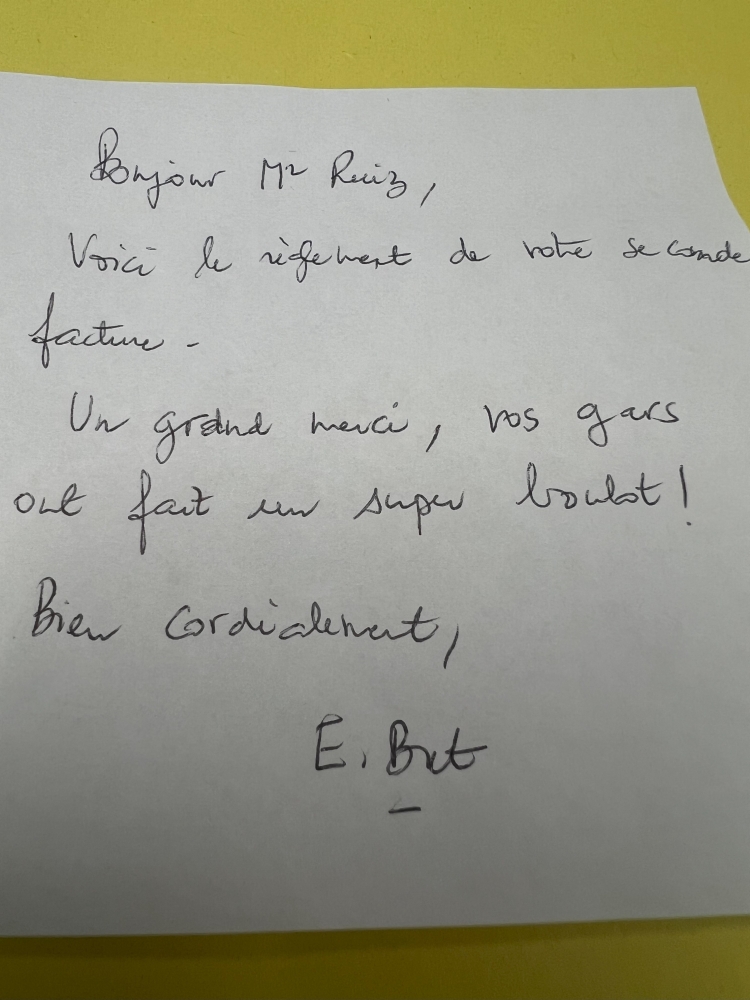 Bonjour Mr Ruiz,
Voici le règlement de votre seconde
facture -
Un grand merci, vos gars
ont fait un super boulot !
Bien cordialement,
E.